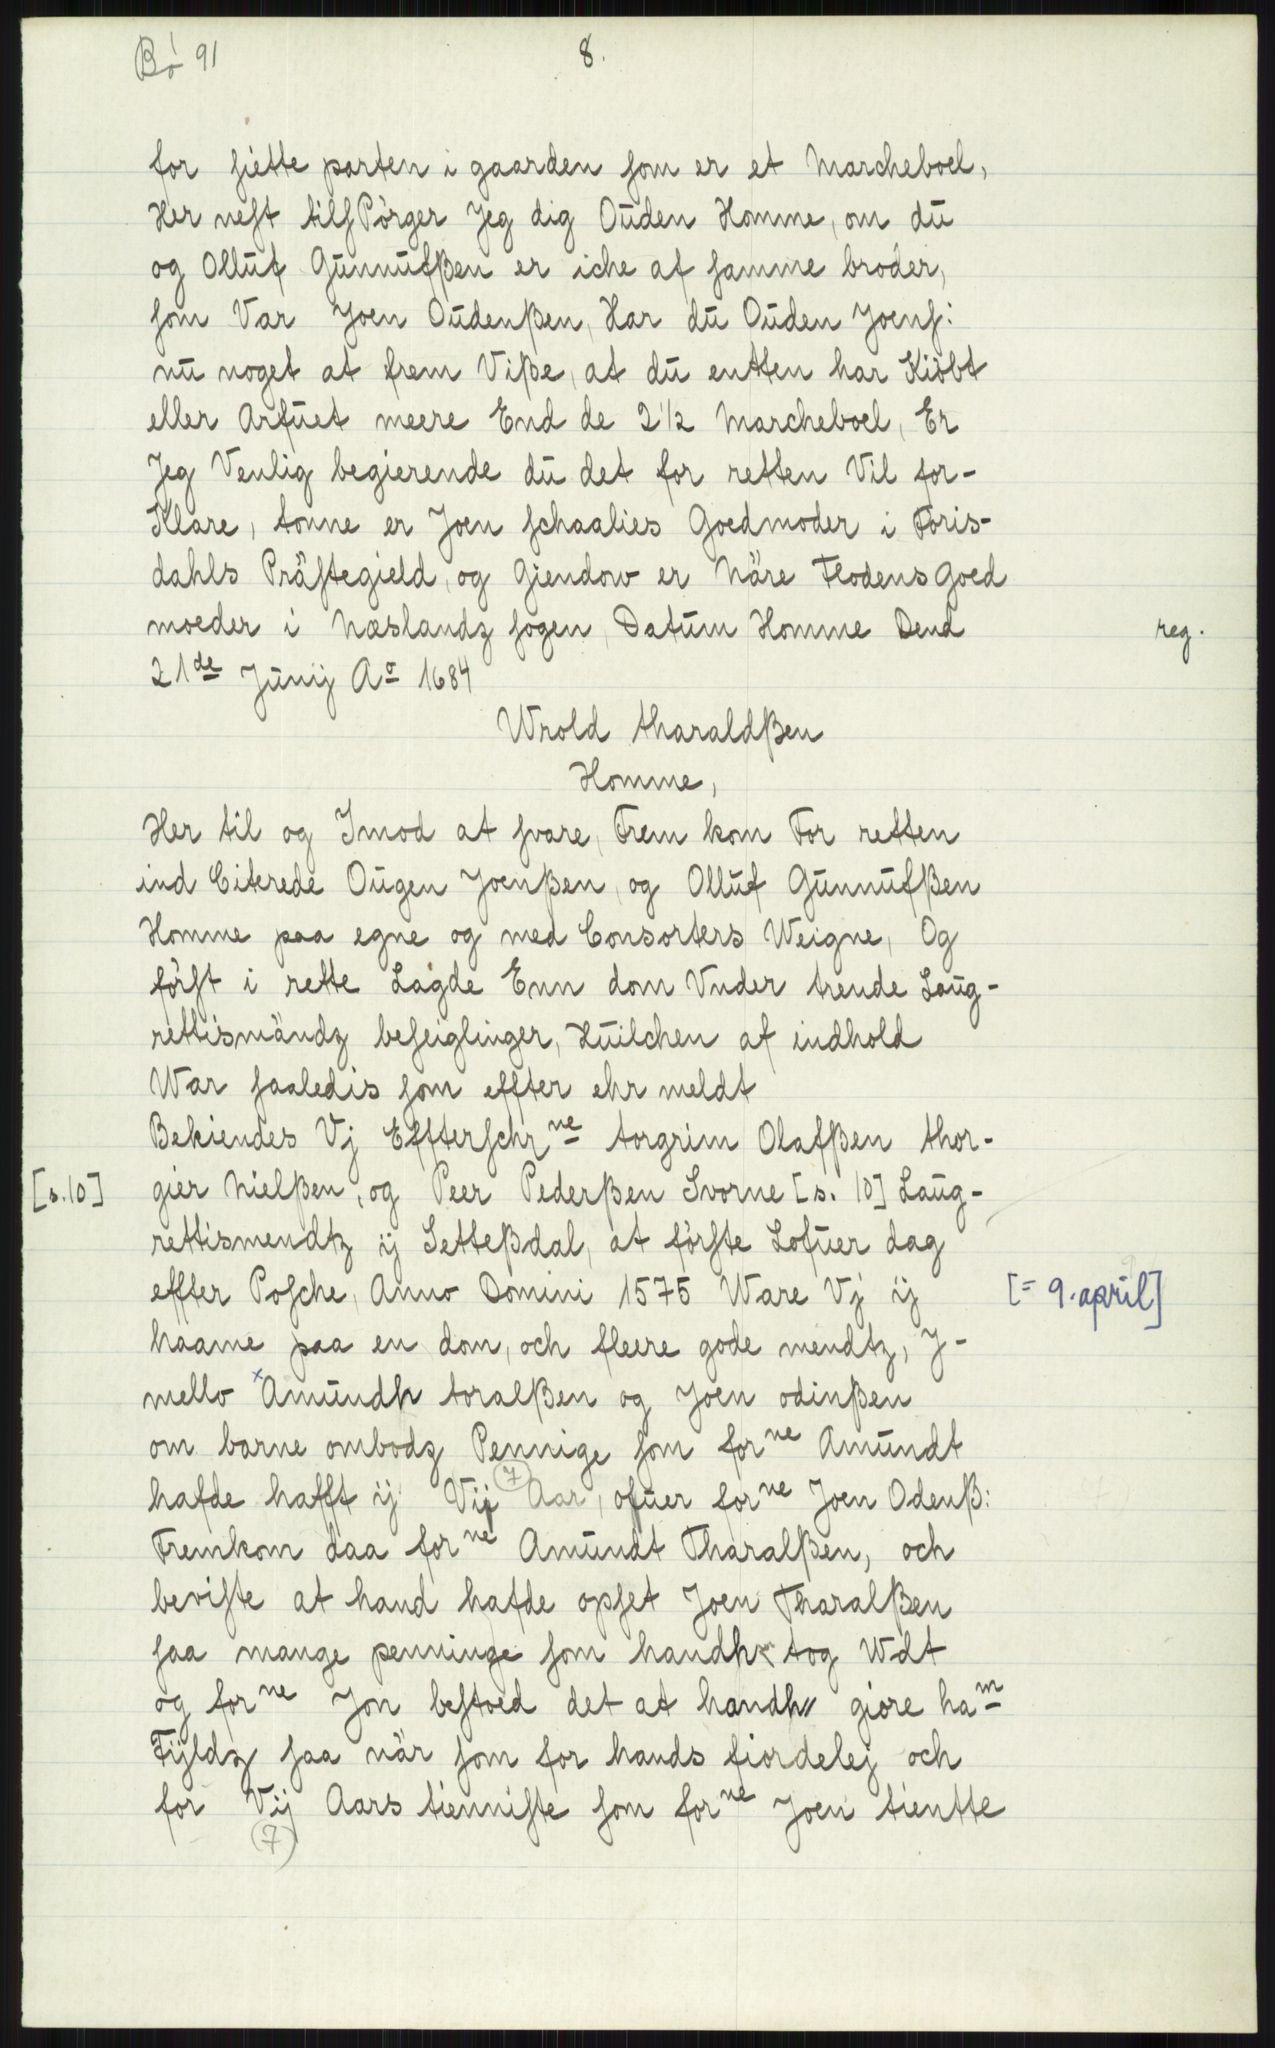 Bö 91
8.
for siette parten i gaarden som er et Marcheboel,
Her nest tilsPörger Jeg dig Ouden Homme, om du
og Olluf Gunnufßen er iche af samme broder,
som Var Joen Oudenßen, Har du Ouden Joens:
nu noget at frem Viße, at du entten har Kiöbt
eller Arfuet meere End de 2½ Marcheboel, Er
Jeg Venlig begierende du det for retten Vil for-
Klare, tonne er Joen schaalies Goedmoder i Foris-
dahls Prästegield, og Giendow er Näre Flodens Goed
moeder i Næslandz sogen, Datum Homme Dend
reg.
21de Junij Ao 1684
Wrold tharaldßen
Homme,
Her til og Imod at svare, Frem kom For retten
ind Citerede Ougen Joenßen, og Olluf Gunnufßen
Homme paa egne og med Consorters Weigne, Og
först i rette Lagde Enn dom Vnder trende Laug-
rettismändz beseiglinger, Huilchen af indhold
War saaledis som effter ehr meldt
Bekiendes Vj Effterschrne torgrim Olafßen thor-
[s.10] gier Nielßen, og Peer Pederßen Svorne [s. 10] Laug-
rettismendtz ij Setteßdal, at förste Lofuer dag
effter Posche, Anno Domini 1575 Ware Vj ij
[= 9. april]
haame paa en dom, och fleere gode mendtz, J-
mello xAmundh toralßen og Joen odinßen
om barne ombodz Pennige som forne Amundt
hafde hafft ij Vij (7) Aar, ofuer forne Joen Odenß:
Fremkom daa forne Amundt Tharalßen, och
beviste at hand hafde opset Joen Tharalßen
saa mange penninge som handh tog Wdt
og forne Jon bestoed det at handh giöre ham
Fijldz saa när som for hands fiordelej och
for Vij Aars tienniste som forne Joen tientte
(7)